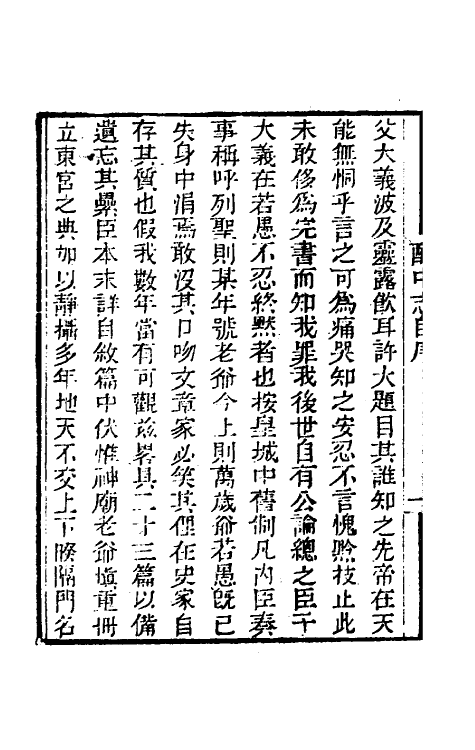 酌中志自序
父大義波及靈露飮耳許大題目其誰知之先帝在天
能無恫乎言之可爲痛哭知之安忍不言愧黔技止此
未敢侈爲完書而知我罪我後世自有公論總之臣子
大義在若愚不忍終默者也按皇城中舊例凡內臣奏
事稱呼列聖則某年號老爺今上則萬歲爺若愚旣已
失身中涓焉敢沒其口吻文章家必笑其俚在史家自
存其質也假我數年當有可觀茲畧具二十三篇以備
遺忘其纍臣本末詳自敘篇中伏惟神廟老爺愼重冊
立東宮之典加以靜攝多年地天不交上下睽隔門名